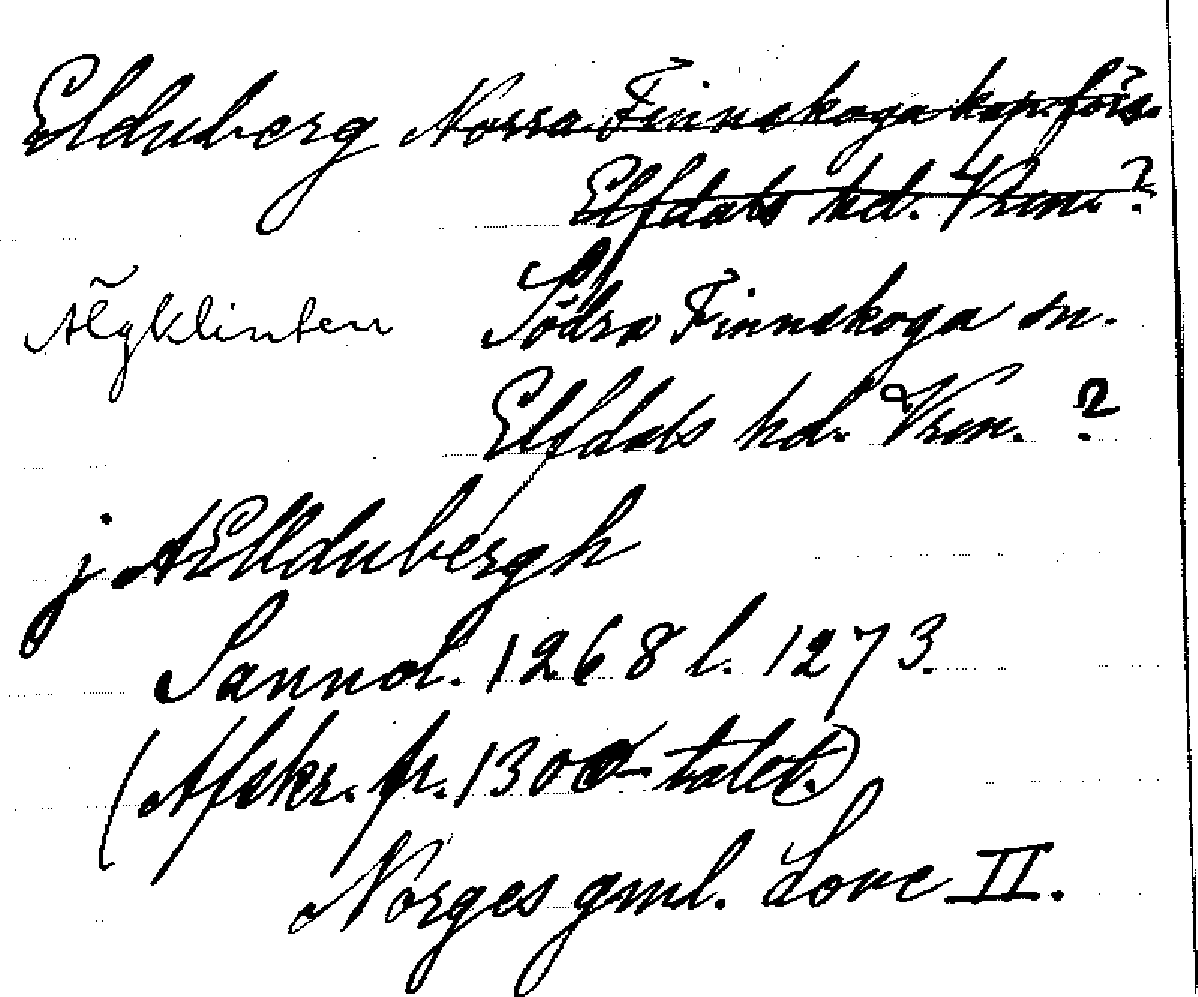 Elduberg Norra Finnskoga kap.förs.
Elfdals hd. Vrm. ?
Älgklinten Södra Finnskoga sn.
Elfdals hd. Vrm. ?
j AElldubergh
Sannol. 1268 l. 1273.
(Afskr. fr. 1300-talet.)
Norges gml. Love II.